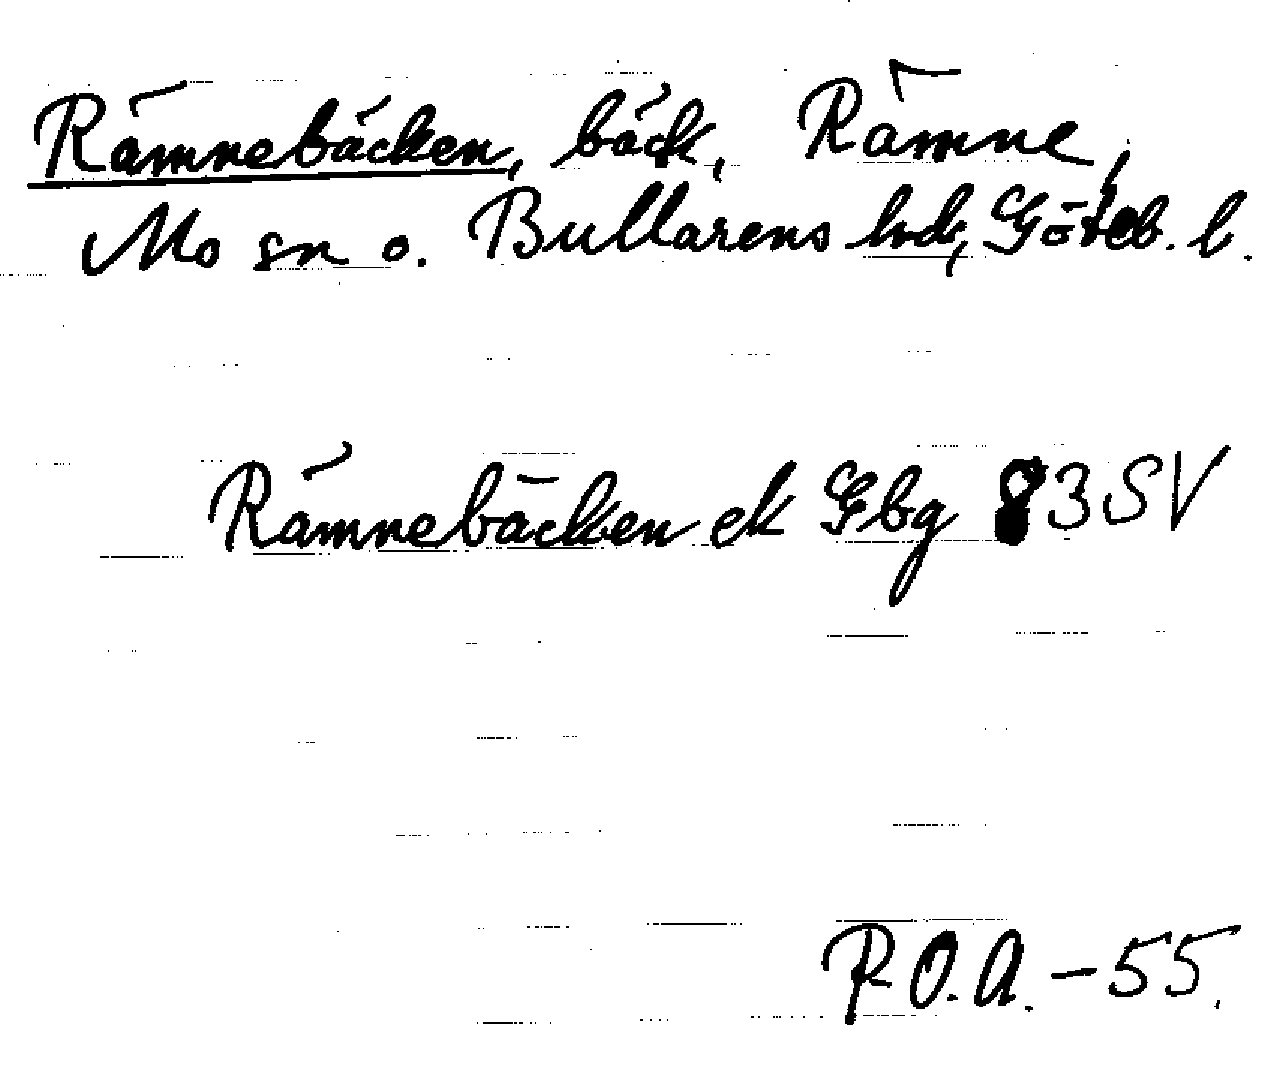 Rämnebäcken, bäck, Rämne,
Mo sn o. Bullarens hd, Göteb. l.
Rämnebäcken ek Gbg 83 SV
R.O.A. - 55.